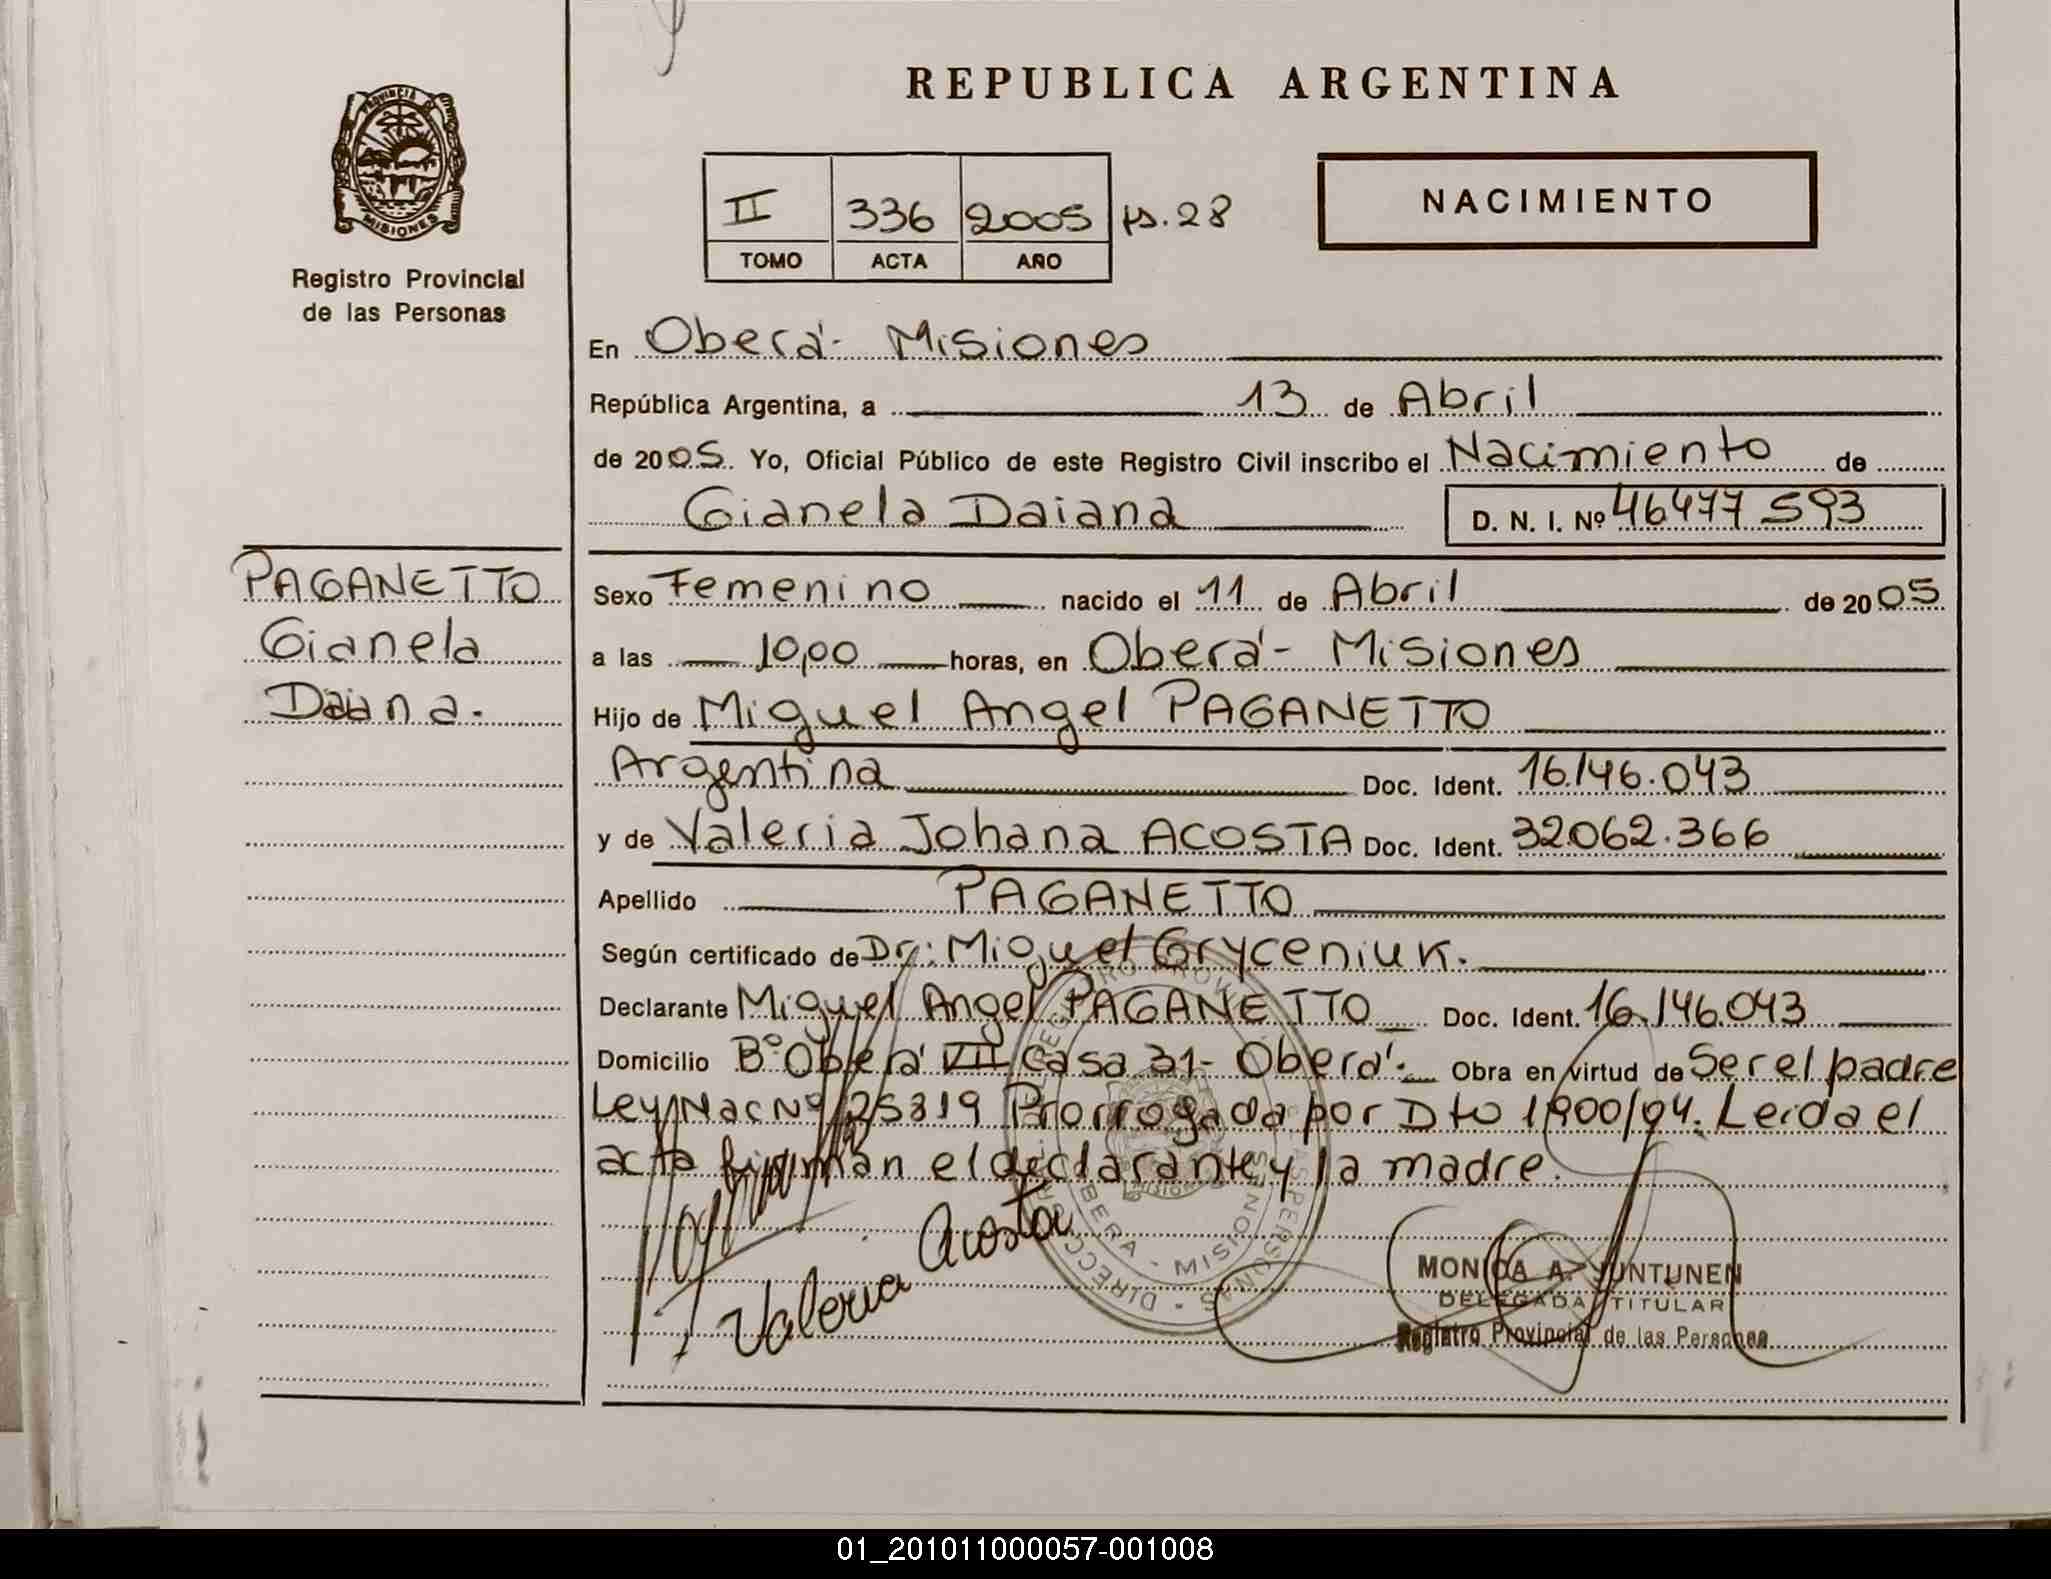 REPUBLICA ARGENTINA
PROVINCIA DE MISIONES
Registro Provincial
de las Personas
II 336 2005 fs. 28
TOMO ACTA AÑO
NACIMIENTO
En Oberá - Misiones
República Argentina, a 13 de Abril
de 2005. Yo, Oficial Público de este Registro Civil inscribo el Nacimiento de
Gianela Daiana D. N. I. Nº 46477593
PAGANETTO
Gianela
Daiana.
Sexo Femenino nacido el 11 de Abril de 2005
a las 10,00 horas, en Oberá - Misiones
Hijo de Miguel Angel PAGANETTO
Argentina Doc. Ident. 16.146.043
y de Valeria Johana ACOSTA Doc. Ident. 32.062.366
Apellido PAGANETTO
Según certificado de Dr: Miguel Gryceniuk.
Declarante Miguel Angel PAGANETTO Doc. Ident. 16.146.043
Domicilio Bº Oberá VII Casa 31 - Oberá. Obra en virtud de Ser el padre
Ley Nac Nº 25819 Prorrogada por Dto 1900/04. Leida el
acta firman el declarante y la madre.
Valeria Acosta
OBERA - MISIONES
MONICA A. JUNTUNEN
DELEGADA TITULAR
Registro Provincial de las Personas
01_201011000057-001008